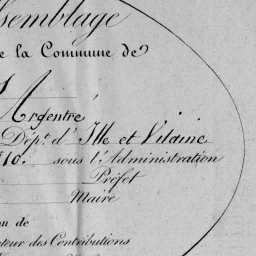 ssemblage
e la Commune de
Argentré
Dépt. d' Ille et Vilaine
sous l'Administration
Préfet
Maire
u de
teur des Contributions